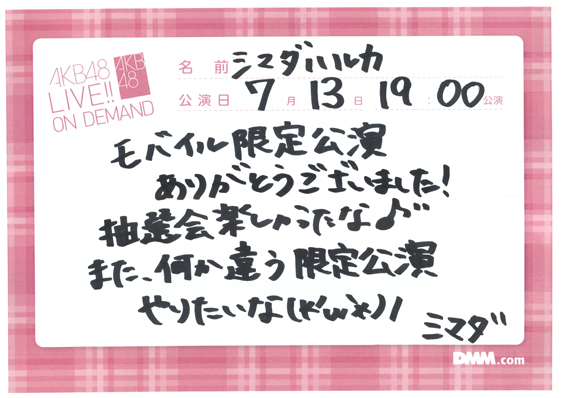 AKB48
LIVE!!
ON DEMAND
AKB
48
名 前 シマダハルカ
公演日 7月 13日 19:00公演
モバイル限定公演
ありがとうございました!
抽選会楽しかったな♪
また、何か違う限定公演
やりたいな(*'ω'*)ノ
シマダ
DMM.com